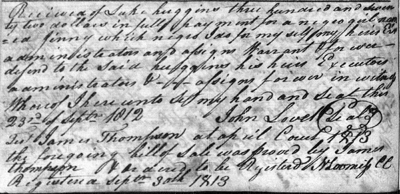 Received of Luke huggins three hundred and seven
ty two dollars in full payment for a negro girl nam
ed jinny which negro I do for my self my heirs Ex
administrators and assigns Warrant & forever
defend to the said huggins his heirs Executors
administrators & assigns forever in witness
Whereof I hereunto set my hand and seal this
23rd of Sept 1812 John Lovet (Seal)
Test James Thompson at april Court 1813
the foregoing bill of Sale was proved by James
thompson & ordered to be Registered
Registered Septr 30th 1813